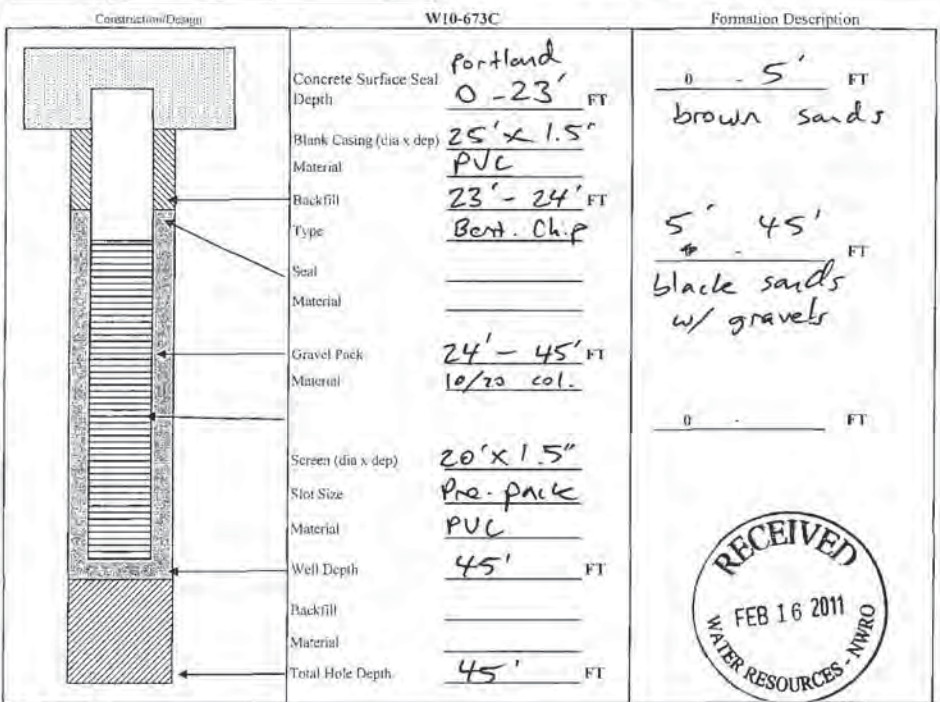 Construction/Design
W10-673C
Formation Description
Concrete Surface Seal Depth Portland 0 - 23' FT
Blank Casing (dia x dep) 25' x 1.5"
Material PVC
Backfill 23' - 24' FT
Type Bent. Chip
Seal
Material
Gravel Pack 24' - 45' FT
Material 10/20 col.
Screen (dia x dep) 20' x 1.5"
Slot Size Pre-pack
Material PVC
Well Depth 45' FT
Backfill
Material
Total Hole Depth 45' FT
0 - 5' FT
brown sands
5' - 45' FT
black sands
w/ gravels
0 - FT
RECEIVED
FEB 16 2011
WATER RESOURCES - NWRO